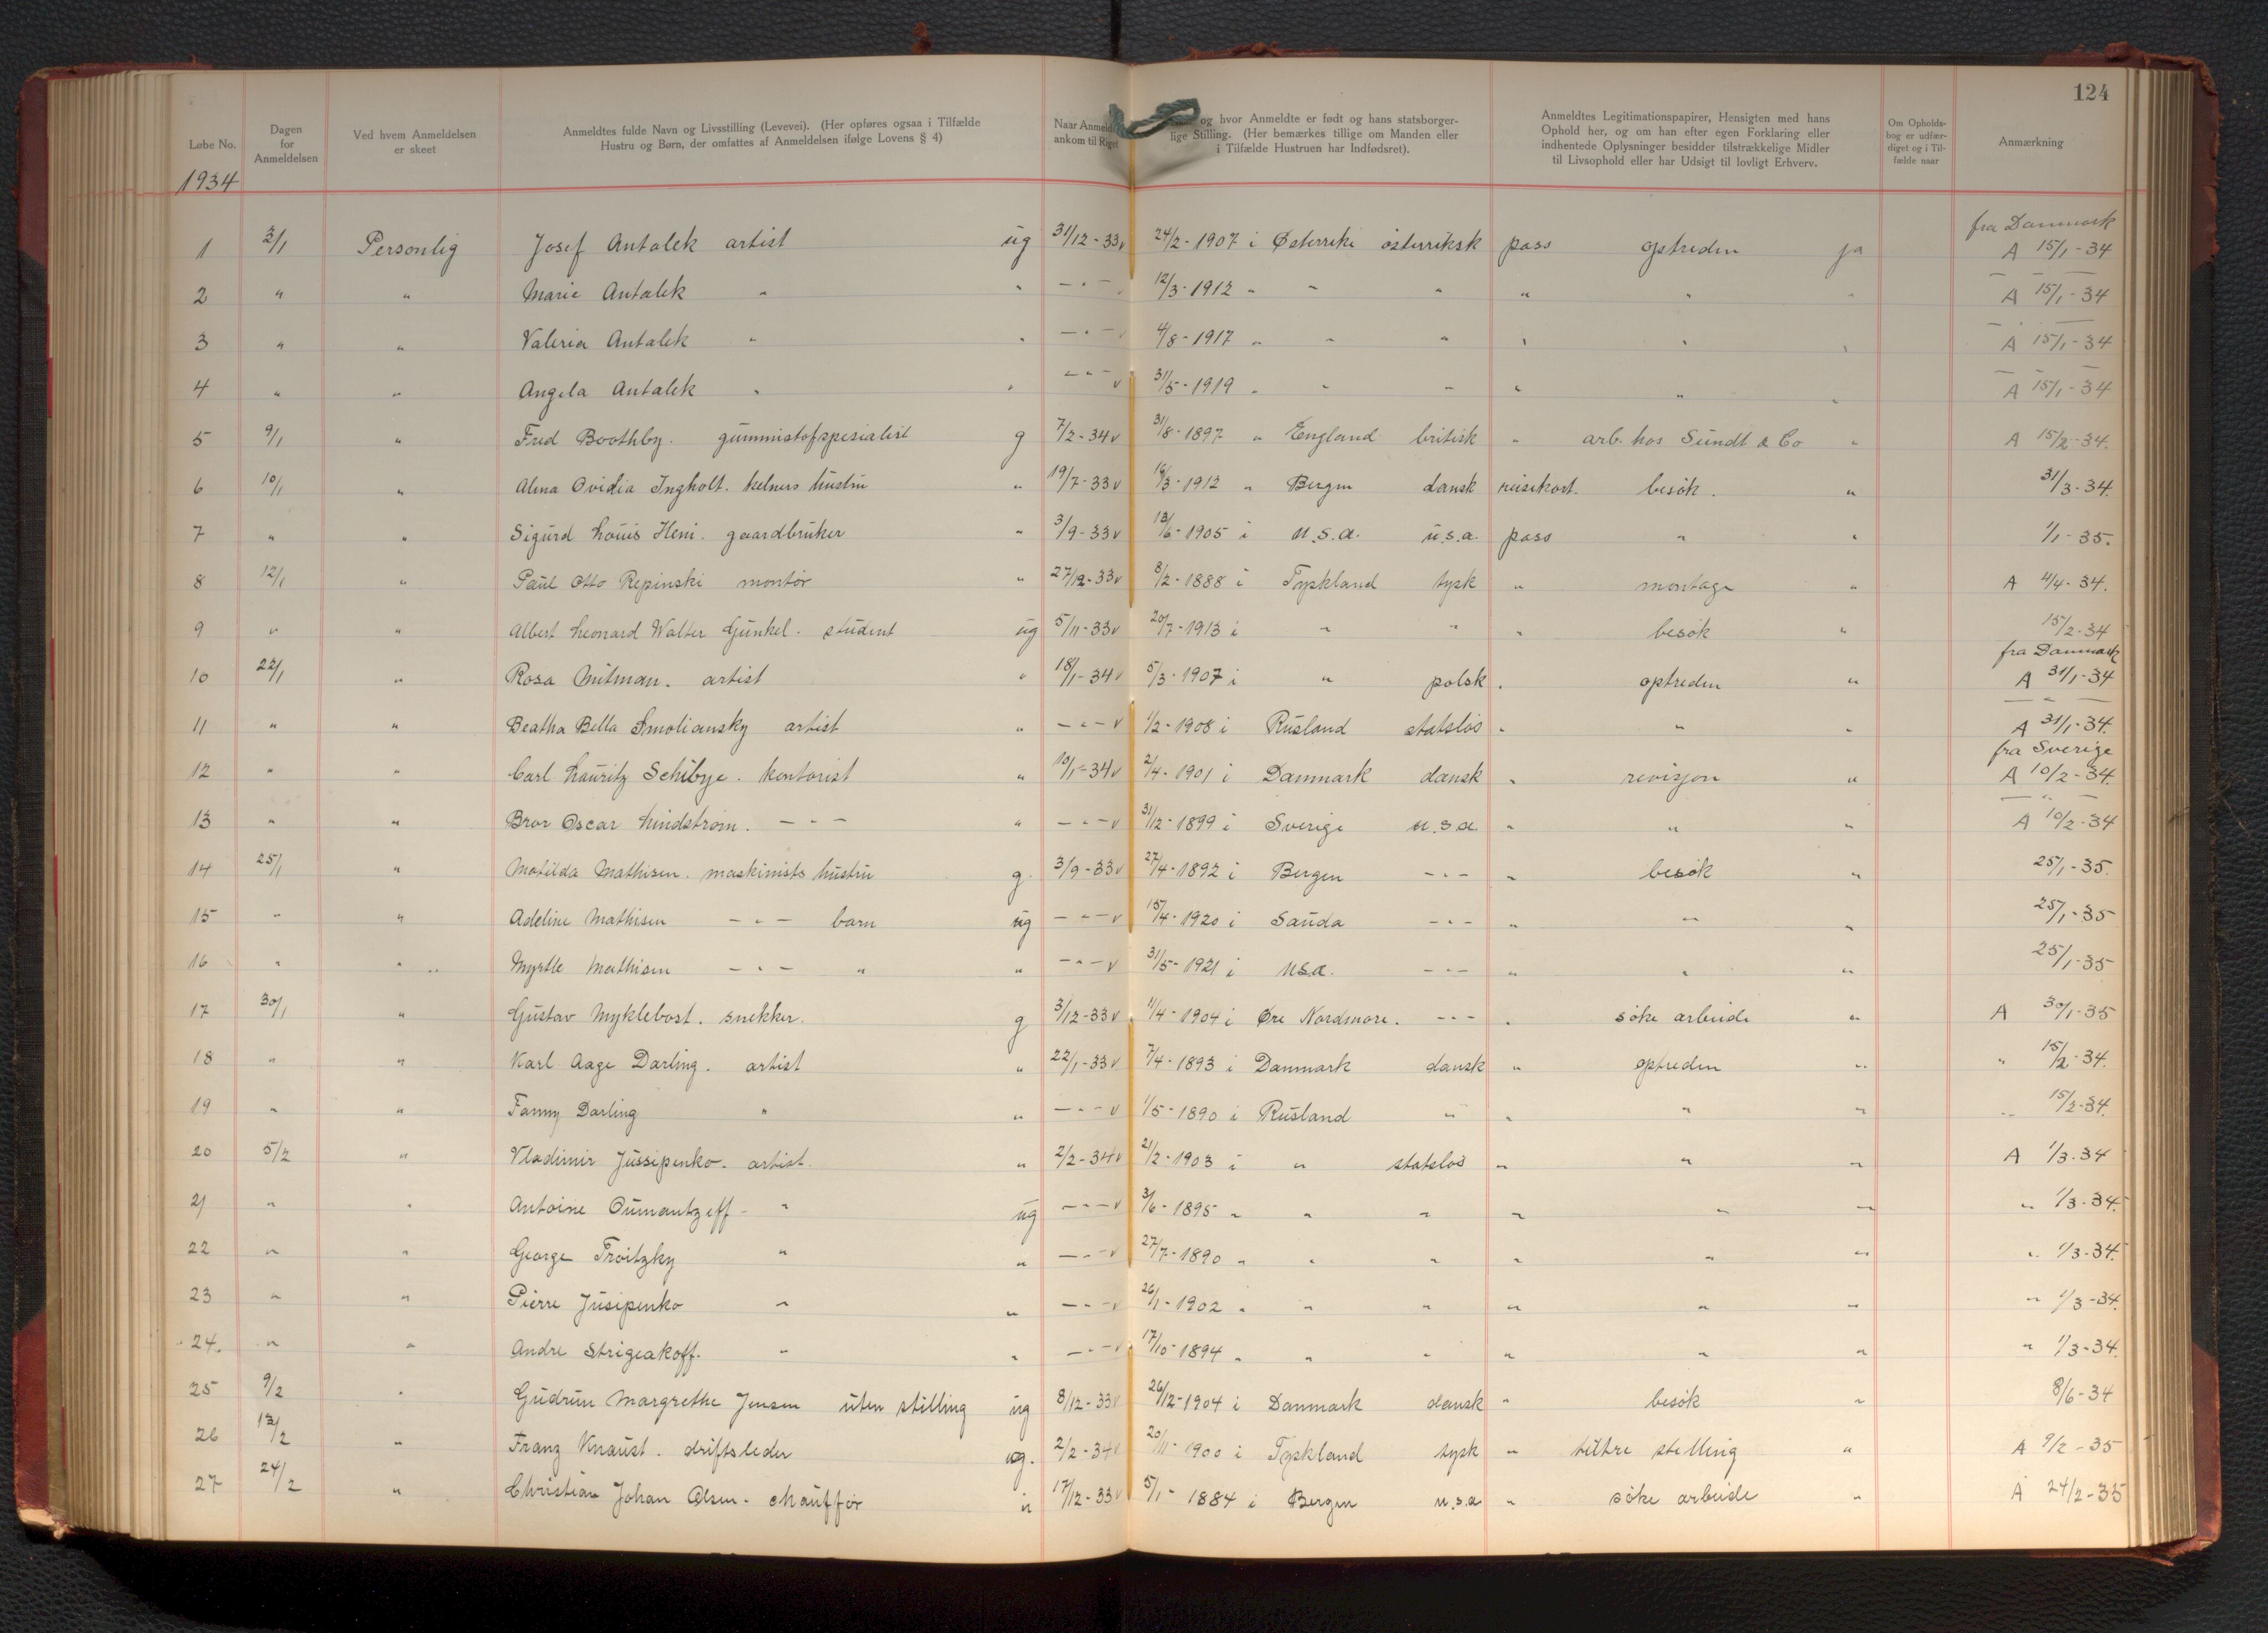 124
Løbe No.
Dagen for Anmeldelsen
Ved hvem Anmeldelsen er skeet
Anmeldtes fulde Navn og Livsstilling (Levevei). (Her opføres ogsaa i Tilfælde Hustru og Børn, der omfattes af Anmeldelsen ifølge Lovens § 4)
Naar Anmeldte ankom til Riget
og hvor Anmeldte er født og hans statsborgerlige Stilling. (Her bemærkes tillige om Manden eller i Tilfælde Hustruen har Indfødsret).
Anmeldtes Legitimationspapirer, Hensigten med hans Ophold her, og om han efter egen Forklaring eller indhentede Oplysninger besidder tilstrækkelige Midler til Livsophold eller har Udsigt til lovligt Erhverv.
Om Opholdsbog er udfærdiget og i Tilfælde naar
Anmærkning
1934
fra Danmark
1 3/1 Personlig Josef Antalek artist ug 31/12-33 v 24/2-1907 i Østerrike österriksk pass optreden ja A 15/1-34
2 " " Marie Antalek " " - " - 12/3-1912 " " " " " " A 15/1-34
3 " " Valeria Antalek " " - " - v 4/8-1917 " " " " " " A 15/1-34
4 " " Angela Antalek " " - " - v 31/5-1919 " " " " " " A 15/1-34
5 9/1 " Fred Boothby. gummistofspesialist g 7/2-34 v 31/8-1897 " England britisk " arb. hos Sundt & Co " A 15/2-34.
6 10/1 " Alma Ovidia Ingholt. kelners hustru " 19/7-33 v 16/3-1912 " Bergen dansk reisekort. besök. " 31/3-34.
7 " " Sigurd Louis Heni. gaardbruker " 3/9-33 v 13/6-1905 i U.S.A. u.s.a. pass " " 1/1-35.
8 12/1 " Paul Otto Repinski montör " 27/12-33 v 8/2-1888 i Tyskland tysk " montage " A 4/4-34.
9 " " Albert Leonard Walter Gunkel. student ug 5/11-33 v 20/7-1913 i " " " besök " 15/2-34
fra Danmark
10 22/1 " Rosa Mitman. artist " 18/1-34 v 5/3-1907 i " polsk " optreden " A 31/1-34
11 " " Beatha Bella Smoliansky artist " - " - v 1/2-1908 i Rusland statslös " " " A 31/1-34.
fra Sverige
12 " " Carl Lauritz Schibye. kontorist " 10/1-34 v 2/4-1901 i Danmark dansk " revisjon " A 10/2-34.
13 " " Bror Oscar Lindström. - " - " - " - v 31/12-1899 i Sverige u.s.a. " " " A 10/2-34
14 25/1 " Matilda Mathisen. maskinists hustru g. 3/9-33 v 27/4-1892 i Bergen - " - " besök " 25/1-35.
15 " " Adeline Mathisen - " - barn ug - " - v 15/4-1920 i Sauda - " - " " " 25/1-35
16 " " Myrtle Mathisen - " - " " - " - v 31/5-1921 i U.S.A. - " - " " " 25/1-35
17 30/1 " Gustav Myklebost. snekker. g 3/12-33 v 11/4-1904 i Øre Nordmøre. - " - " söke arbeide " A 30/1-35
18 " " Karl Aage Darling. artist " 22/1-33 v 7/4-1893 i Danmark dansk " optreden " " 15/2-34.
19 " " Fanny Darling " " - " - v 1/5-1890 i Rusland " " " " " 15/2-34.
20 5/2 " Vladimir Jussipenko. artist. " 2/2-34 v 21/2-1903 i " statslös " " " A 1/3-34
21 " " Antoine Oumantzeff " ug - " - v 3/6-1895 " " " " " " " 1/3-34.
22 " " George Troitzky " " - " - v 27/7-1890 " " " " " " " 1/3-34.
23 " " Pierre Jusipenko " " - " - v 26/1-1902 " " " " " " " 1/3-34.
24. " " Andre Strigeakoff. " " - " - v 17/10-1894 " " " " " " " 1/3-34.
25 9/2 " Gudrun Margrethe Jensen uten stilling ug 8/12-33 v 26/12-1904 i Danmark dansk " besök " 8/6-34
26 13/2 " Franz Knaust. driftsleder ug. 2/2-34 v 20/11-1900 i Tyskland tysk " tiltre stelling " A 9/2-35
27 24/2 " Christian Johan Olsen. chauffør " 17/12-33 v 5/1-1884 i Bergen u.s.a " söke arbeide " A 24/2-35